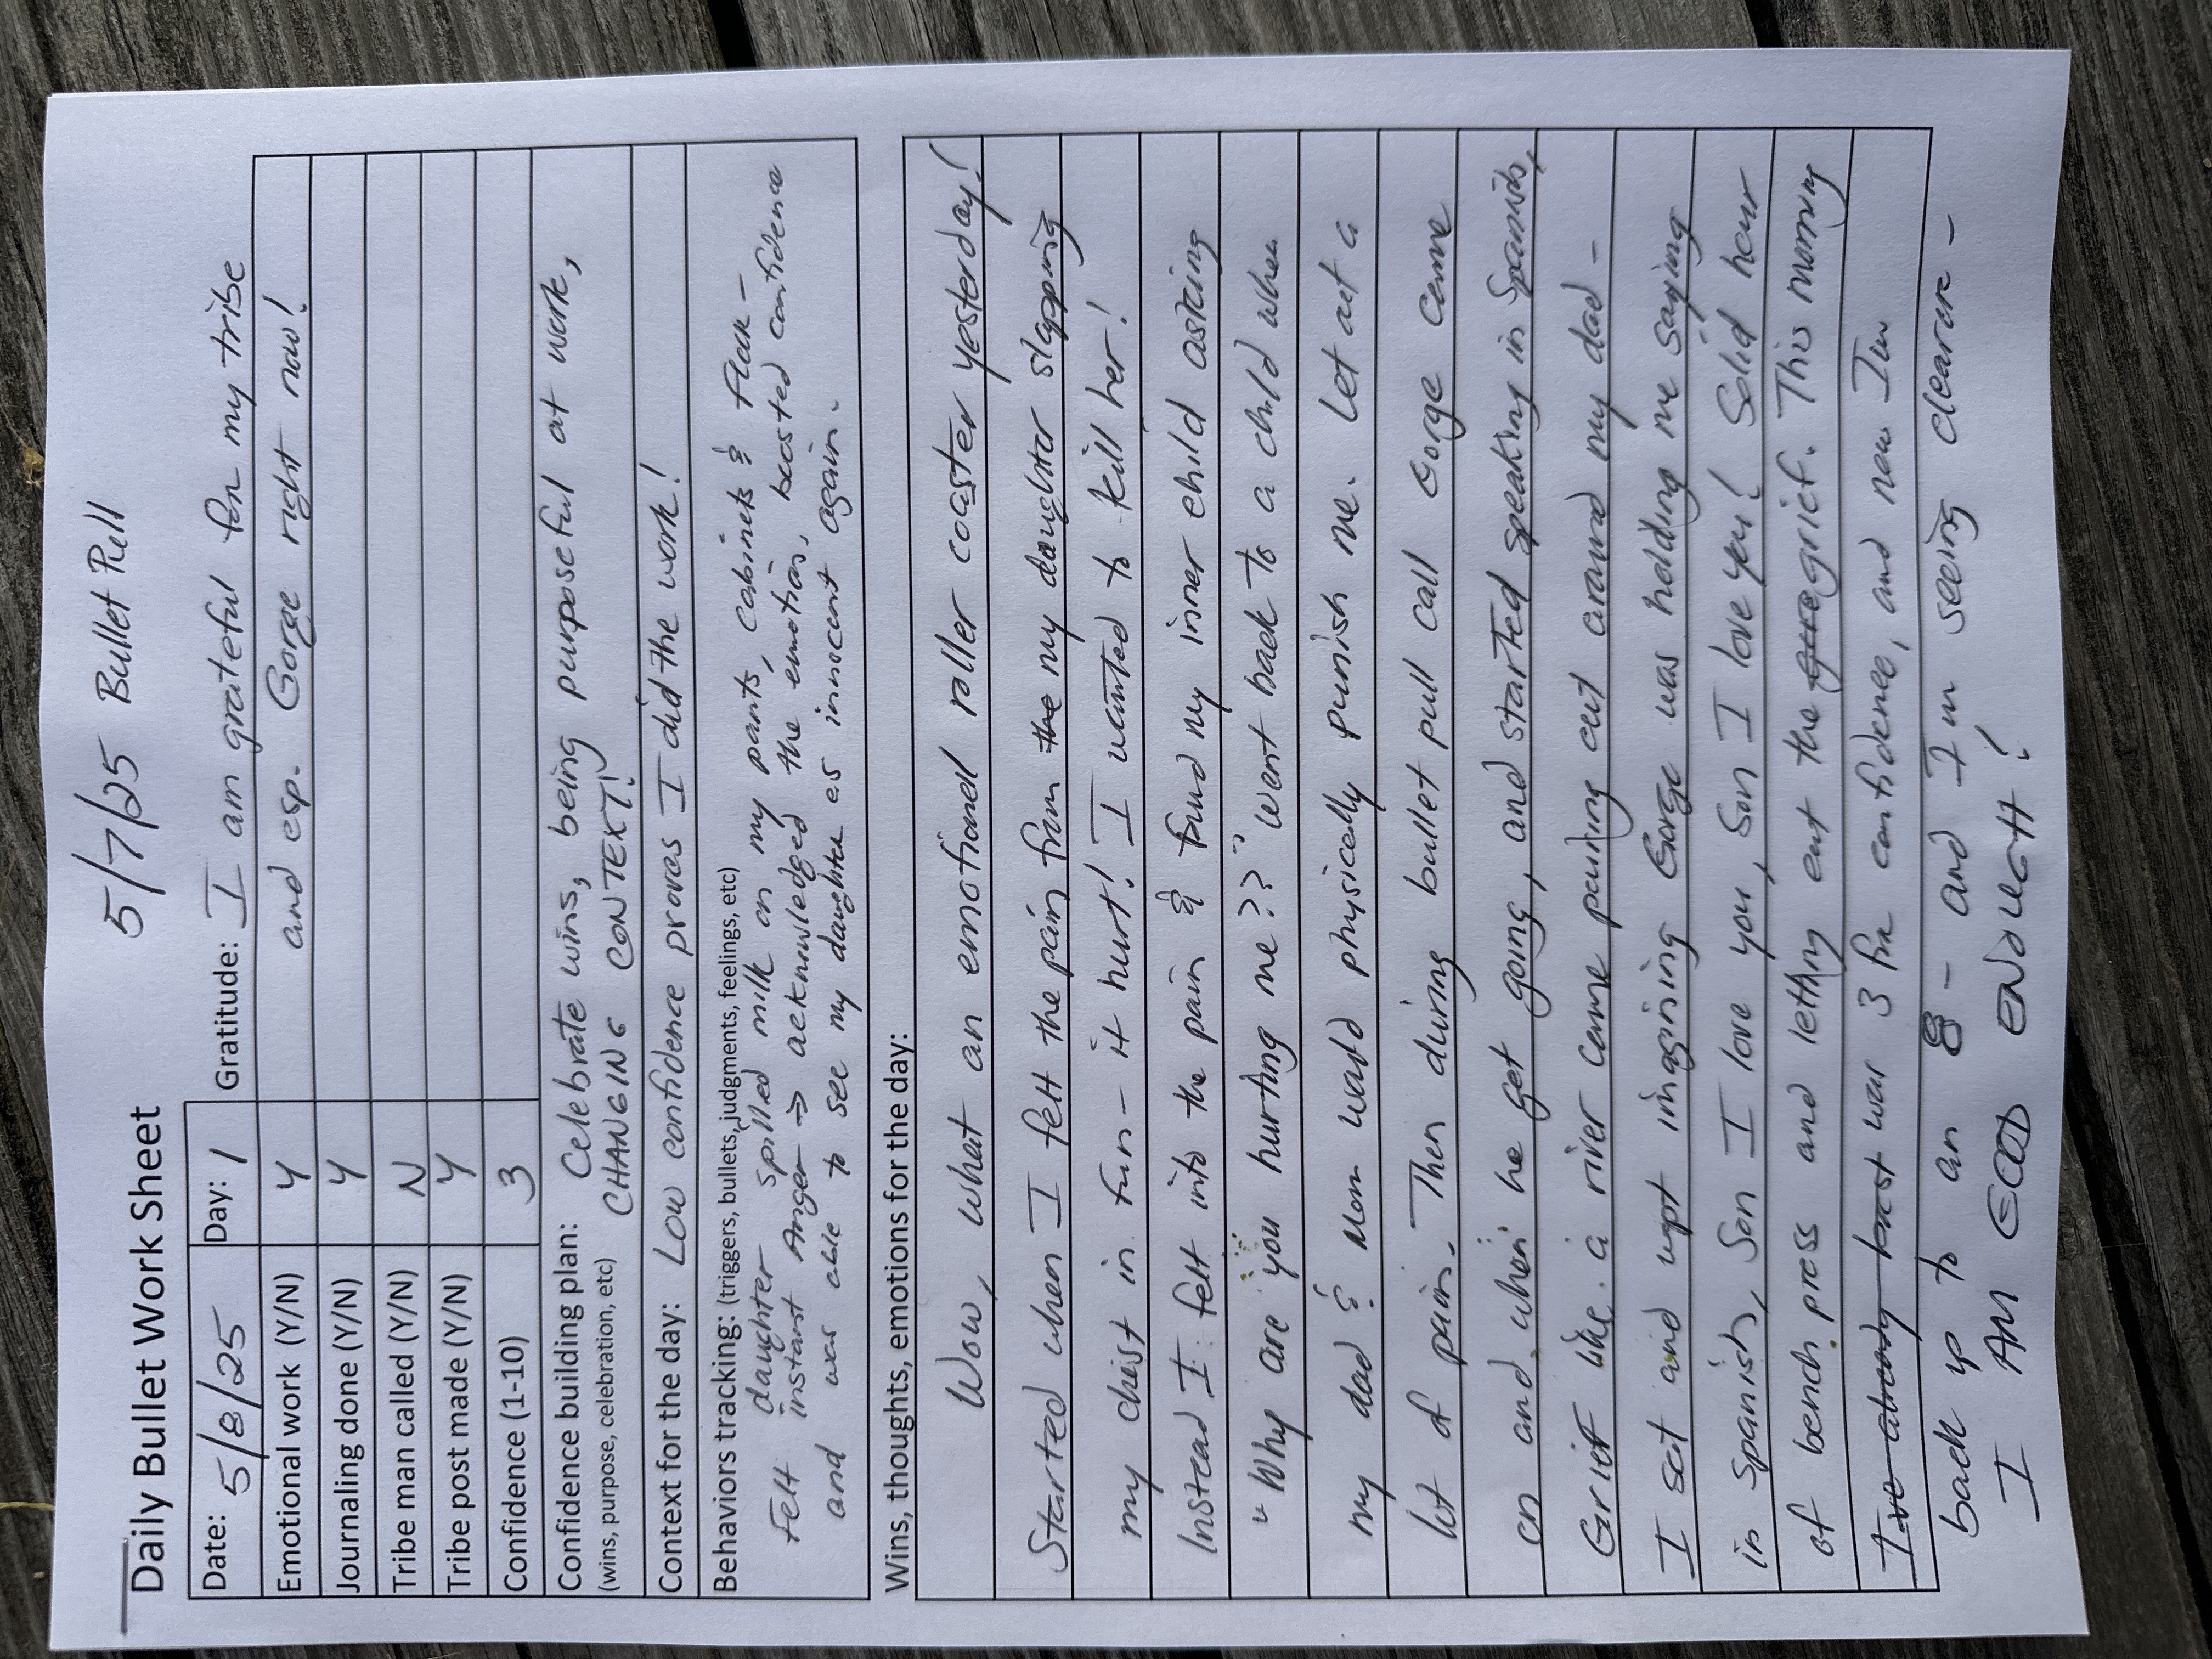 5/7/25 Bullet Pull
Daily Bullet Work Sheet
Date: 5/8/25 Day: 1 Gratitude: I am grateful for my tribe
Emotional work (Y/N) Y and esp. Gorge right now!
Journaling done (Y/N) Y
Tribe man called (Y/N) N
Tribe post made (Y/N) Y
Confidence (1-10) 3
Confidence building plan: Celebrate wins, being purposeful at work,
(wins, purpose, celebration, etc) CHANGING CONTEXT!
Context for the day: Low confidence proves I did the work!
Behaviors tracking: (triggers, bullets, judgments, feelings, etc)
daughter spilled milk on my pants, cabinets & floor -
Felt instant Anger → acknowledged the emotion, boosted confidence
and was able to see my daughter as innocent again.
Wins, thoughts, emotions for the day:
Wow, what an emotional roller coaster yesterday!
Started when I felt the pain from the my daughter slapping
my chest in fun - it hurt! I wanted to kill her!
Instead I felt into the pain & found my inner child asking
"Why are you hurting me??" Went back to a child when
my dad & Mom would physically punish me. Let out a
lot of pain. Then during bullet pull call Gorge came
on and when he got going, and started speaking in Spanish,
Grief like a river came pouring out around my dad -
I sat and wept imagining Gorge was holding me saying
in Spanish, Son I love you, Son I love you! Solid hour
of bench press and letting out the grief. This morning
I've already boost was 3 for confidence, and now I'm
back up to an 8 - and I'm seeing clearer -
I AM GOOD ENOUGH!